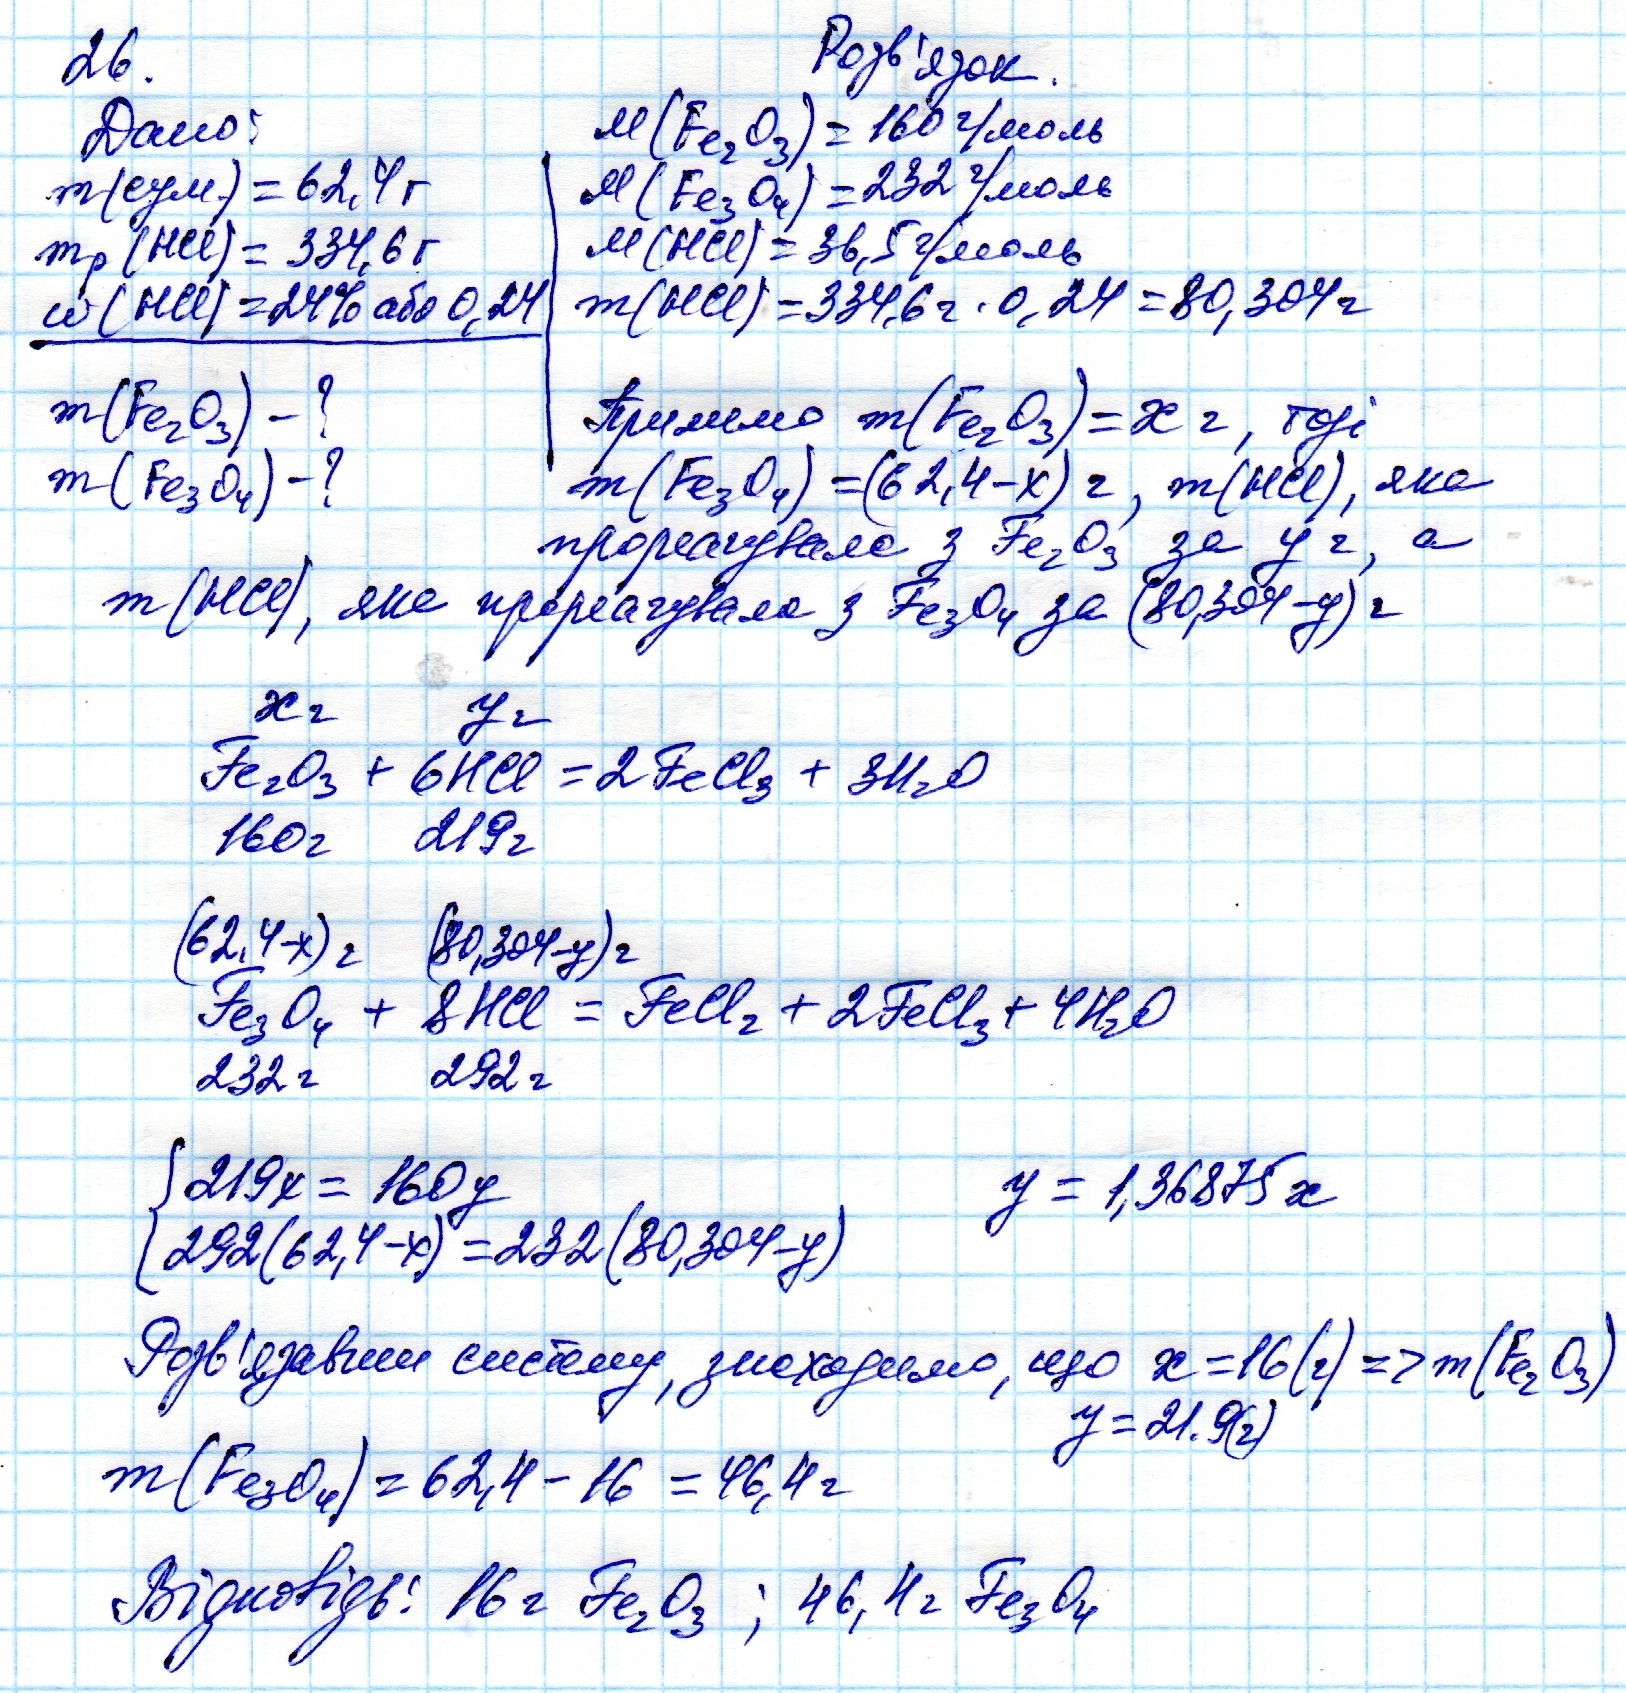 26.
Розв'язок.
Дано:
m(сум.) = 62,4 г
mр(HCl) = 334,6 г
ω(HCl) = 24% або 0,24
m(Fe₂O₃) - ?
m(Fe₃O₄) - ?
M(Fe₂O₃) = 160 г/моль
M(Fe₃O₄) = 232 г/моль
M(HCl) = 36,5 г/моль
m(HCl) = 334,6 г · 0,24 = 80,304 г
Приймемо m(Fe₂O₃) = x г, тоді
m(Fe₃O₄) = (62,4-x) г, m(HCl), яка
прореагувала з Fe₂O₃ за y г, а
m(HCl), яка прореагувала з Fe₃O₄ за (80,304-y) г
x г y г
Fe₂O₃ + 6HCl = 2FeCl₃ + 3H₂O
160 г 219 г
(62,4-x) г (80,304-y) г
Fe₃O₄ + 8HCl = FeCl₂ + 2FeCl₃ + 4H₂O
232 г 292 г
219x = 160y y = 1,36875x
292(62,4-x) = 232(80,304-y)
Розв'язавши систему, знаходимо, що x = 16(г) => m(Fe₂O₃)
y = 21.9(г)
m(Fe₃O₄) = 62,4 - 16 = 46,4 г
Відповідь: 16 г Fe₂O₃ ; 46,4 г Fe₃O₄